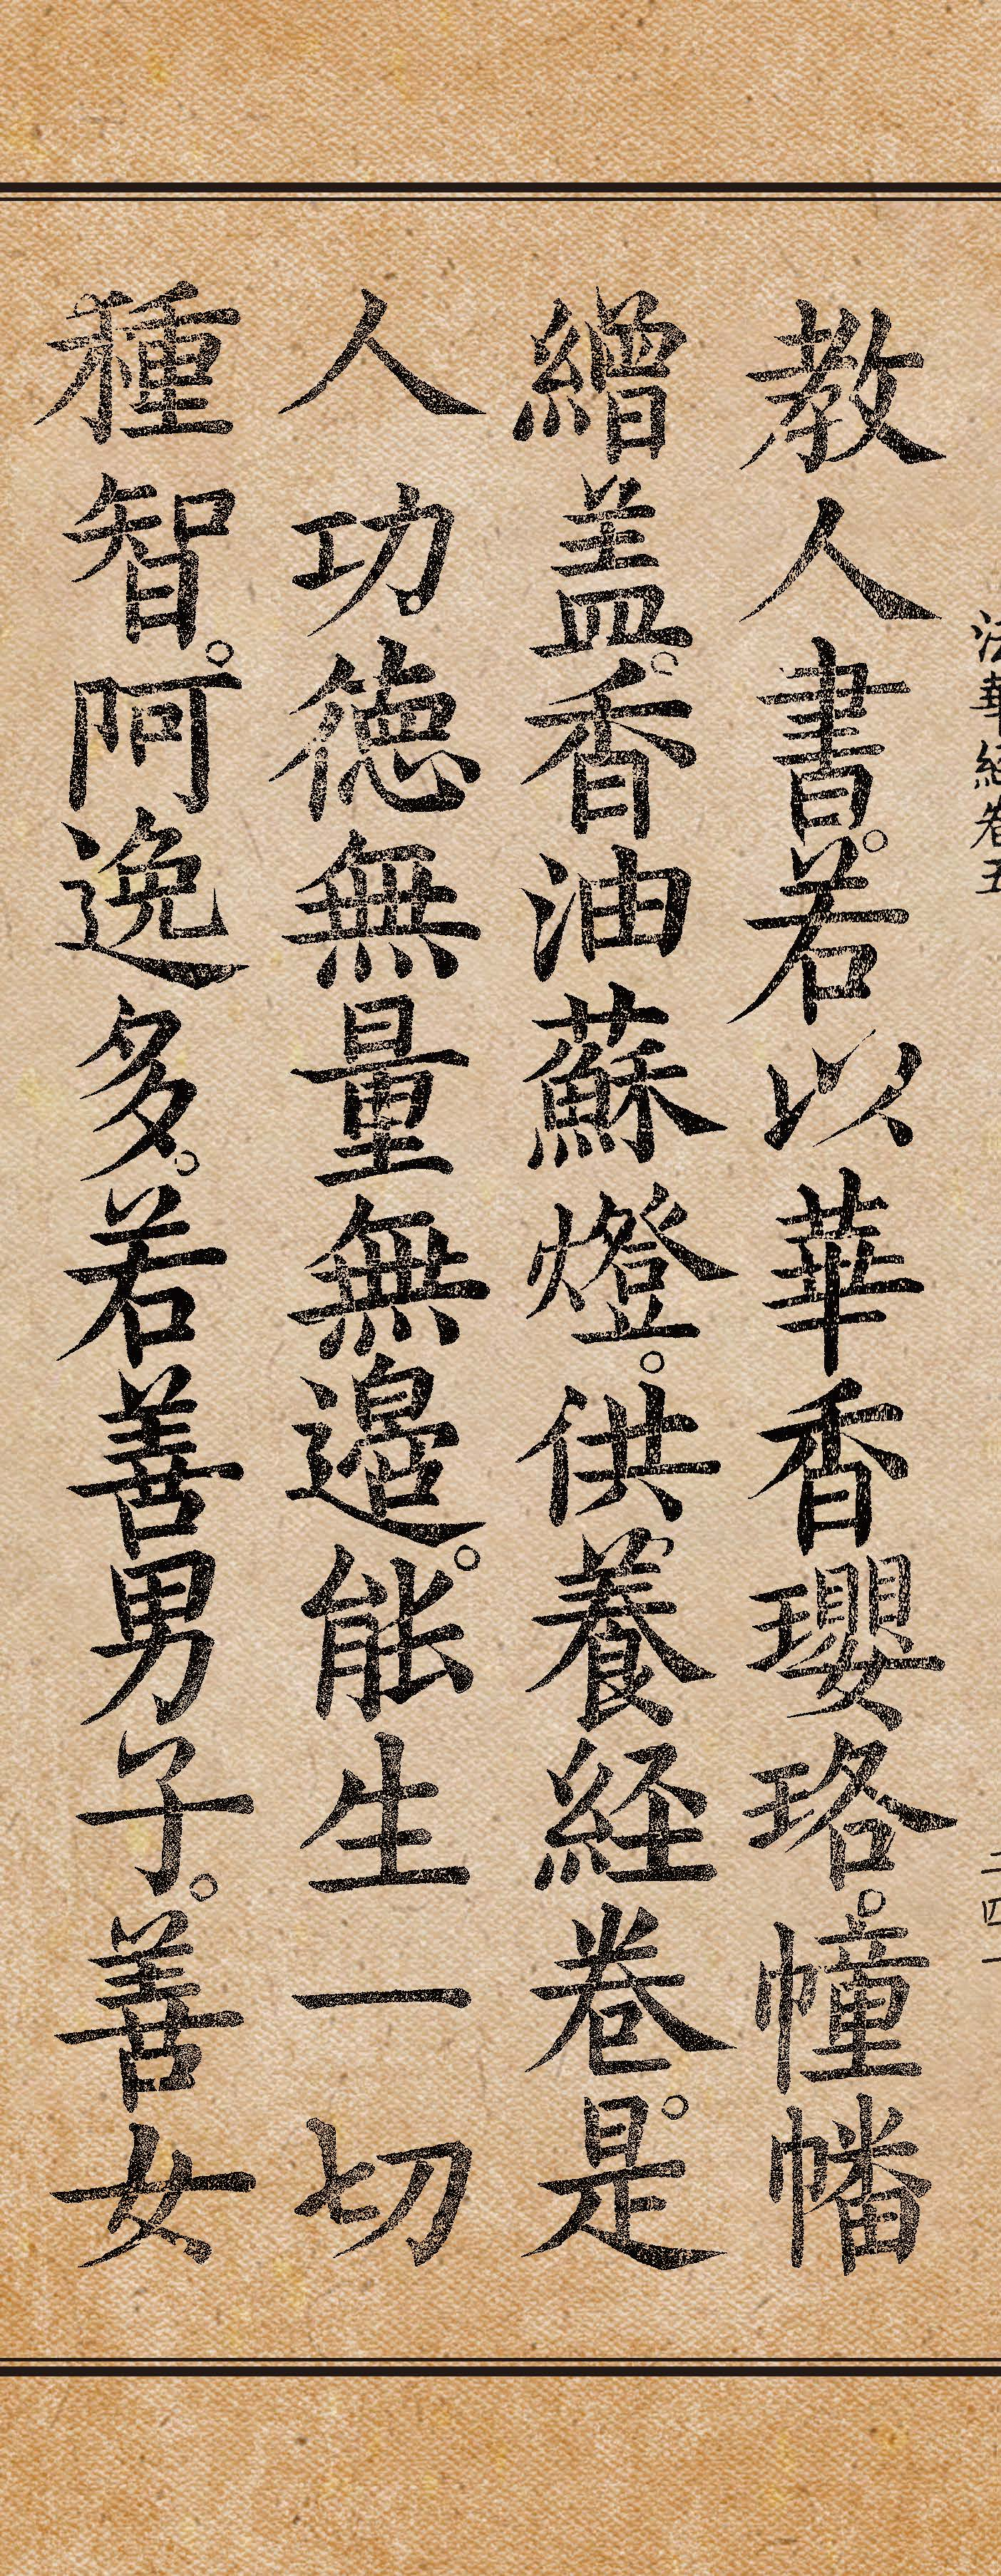 法華經卷五
二四一
教人書。若以華香瓔珞。幢幡
繒盖。香油蘇燈。供養経卷。是
人功德無量無邊。能生一切
種智。阿逸多。若善男子。善女